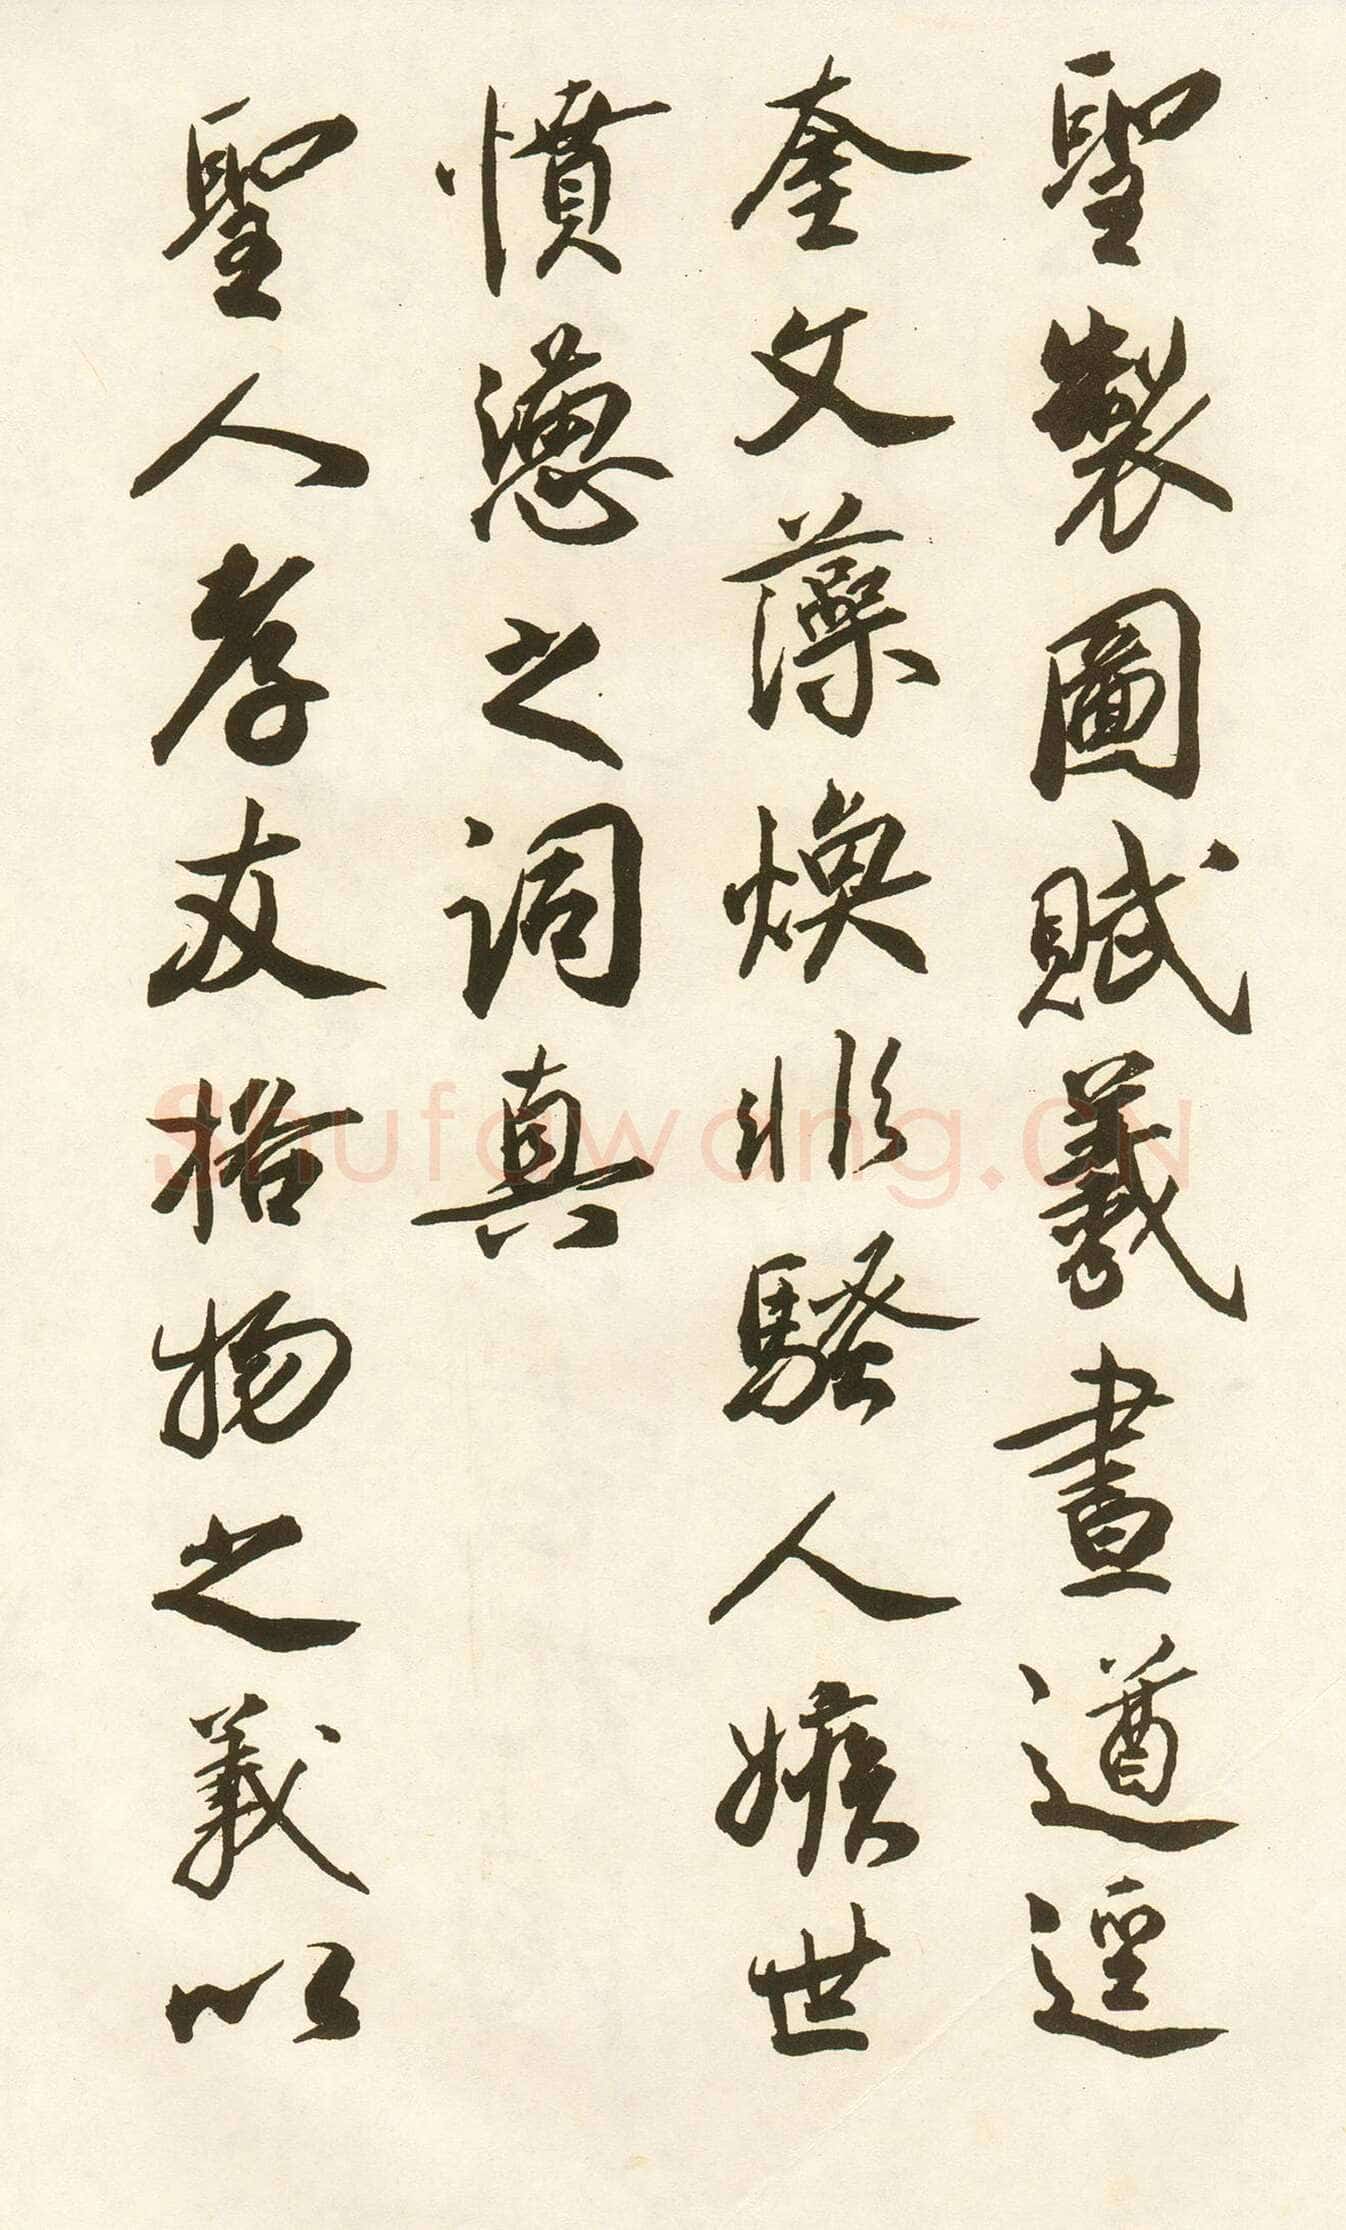 聖製圖賦羲畫遒逕
奎文藻煥非騷人嫉世
憤懣之詞真
聖人孝友格物之義以
Shufawang.CN